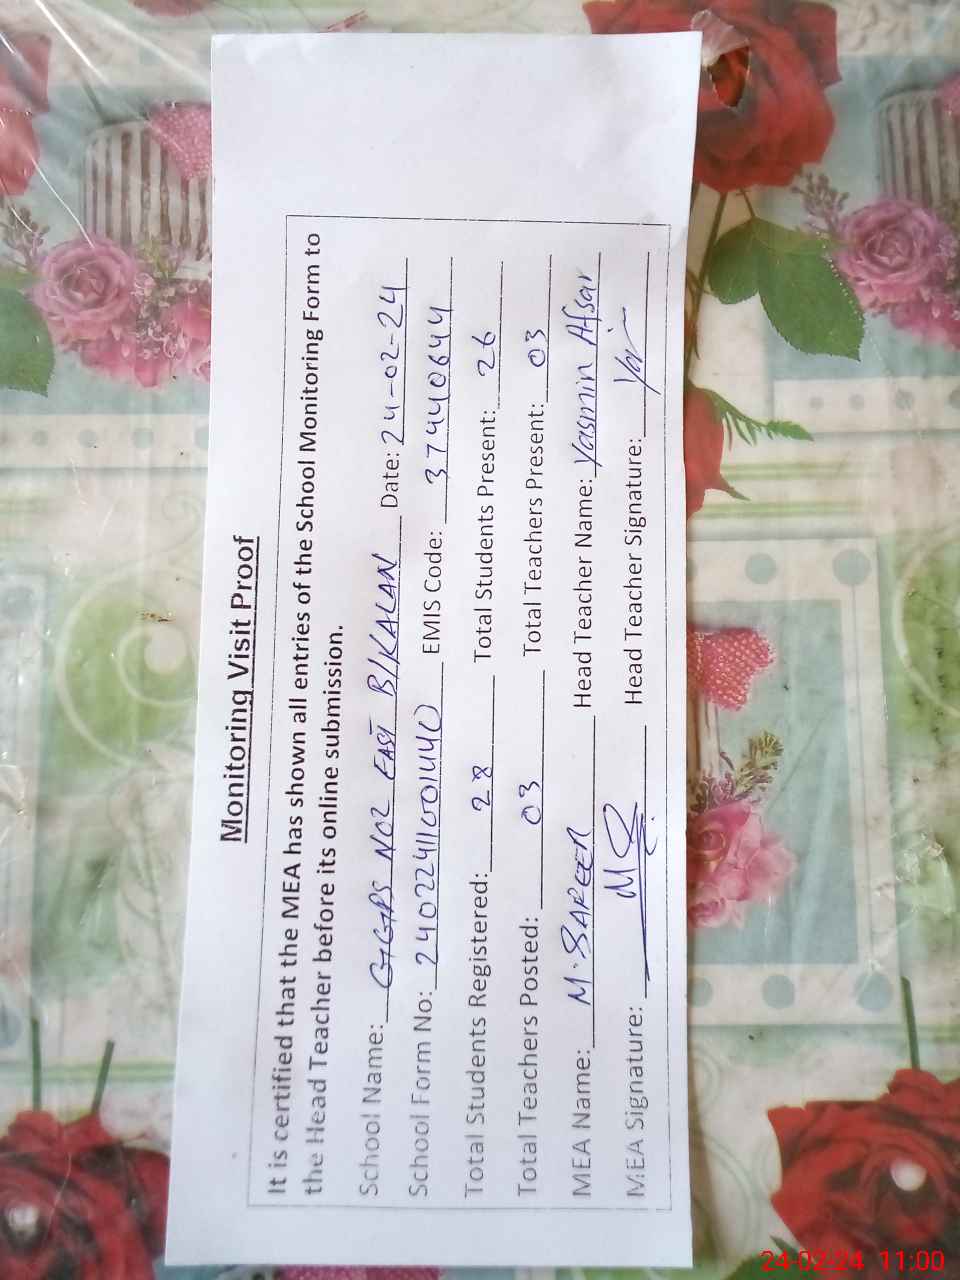 Monitoring Visit Proof
It is certified that the MEA has shown all entries of the School Monitoring Form to
the Head Teacher before its online submission.
School Name: GGPS NO2 EAST B/KALAN Date: 24-02-24
School Form No: EMIS Code: 37440644
Total Students Registered: 28 Total Students Present: 26
Total Teachers Posted: 03 Total Teachers Present: 03
MEA Name: M. SAREER Head Teacher Name: Yasmin Afsar
MEA Signature: Head Teacher Signature:
24-02-24 11:00